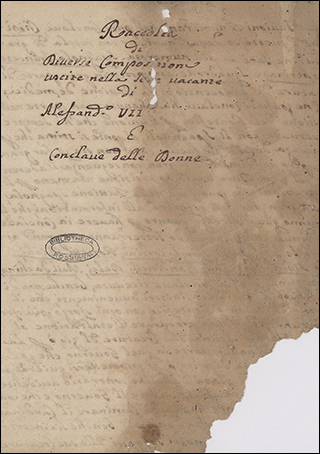 Raccolta
di
Diverse Composizioni
uscite nella Sede vacante
di
Alessand.º VII
E
Conclave delle Donne
BIBLIOTHECA
ROSSIANA